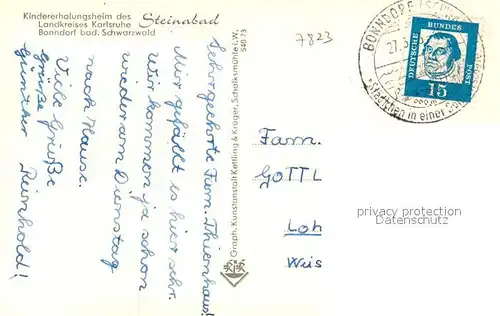 Kindererholungsheim des
Landkreises Karlsruhe Steinabad
Bonndorf bad. Schwarzwald
7823
Sehrgeehrte Fam. Thienhaus!
Mir gefällt es hier sehr.
Wir kommen ja schon
wieder am Dienstag
nach Hause.
Viele Grüße
Günther Reinhold!
Graph. Kunstanstalt Kettling & Krüger, Schalksmühle i. W.
540 73
BONNDORF (SCHW
DEUTSCHE BUNDES POST
15
Städtchen in einer
Fam.
GOTTL
Loh
Wies
privacy protection
Datenschutz